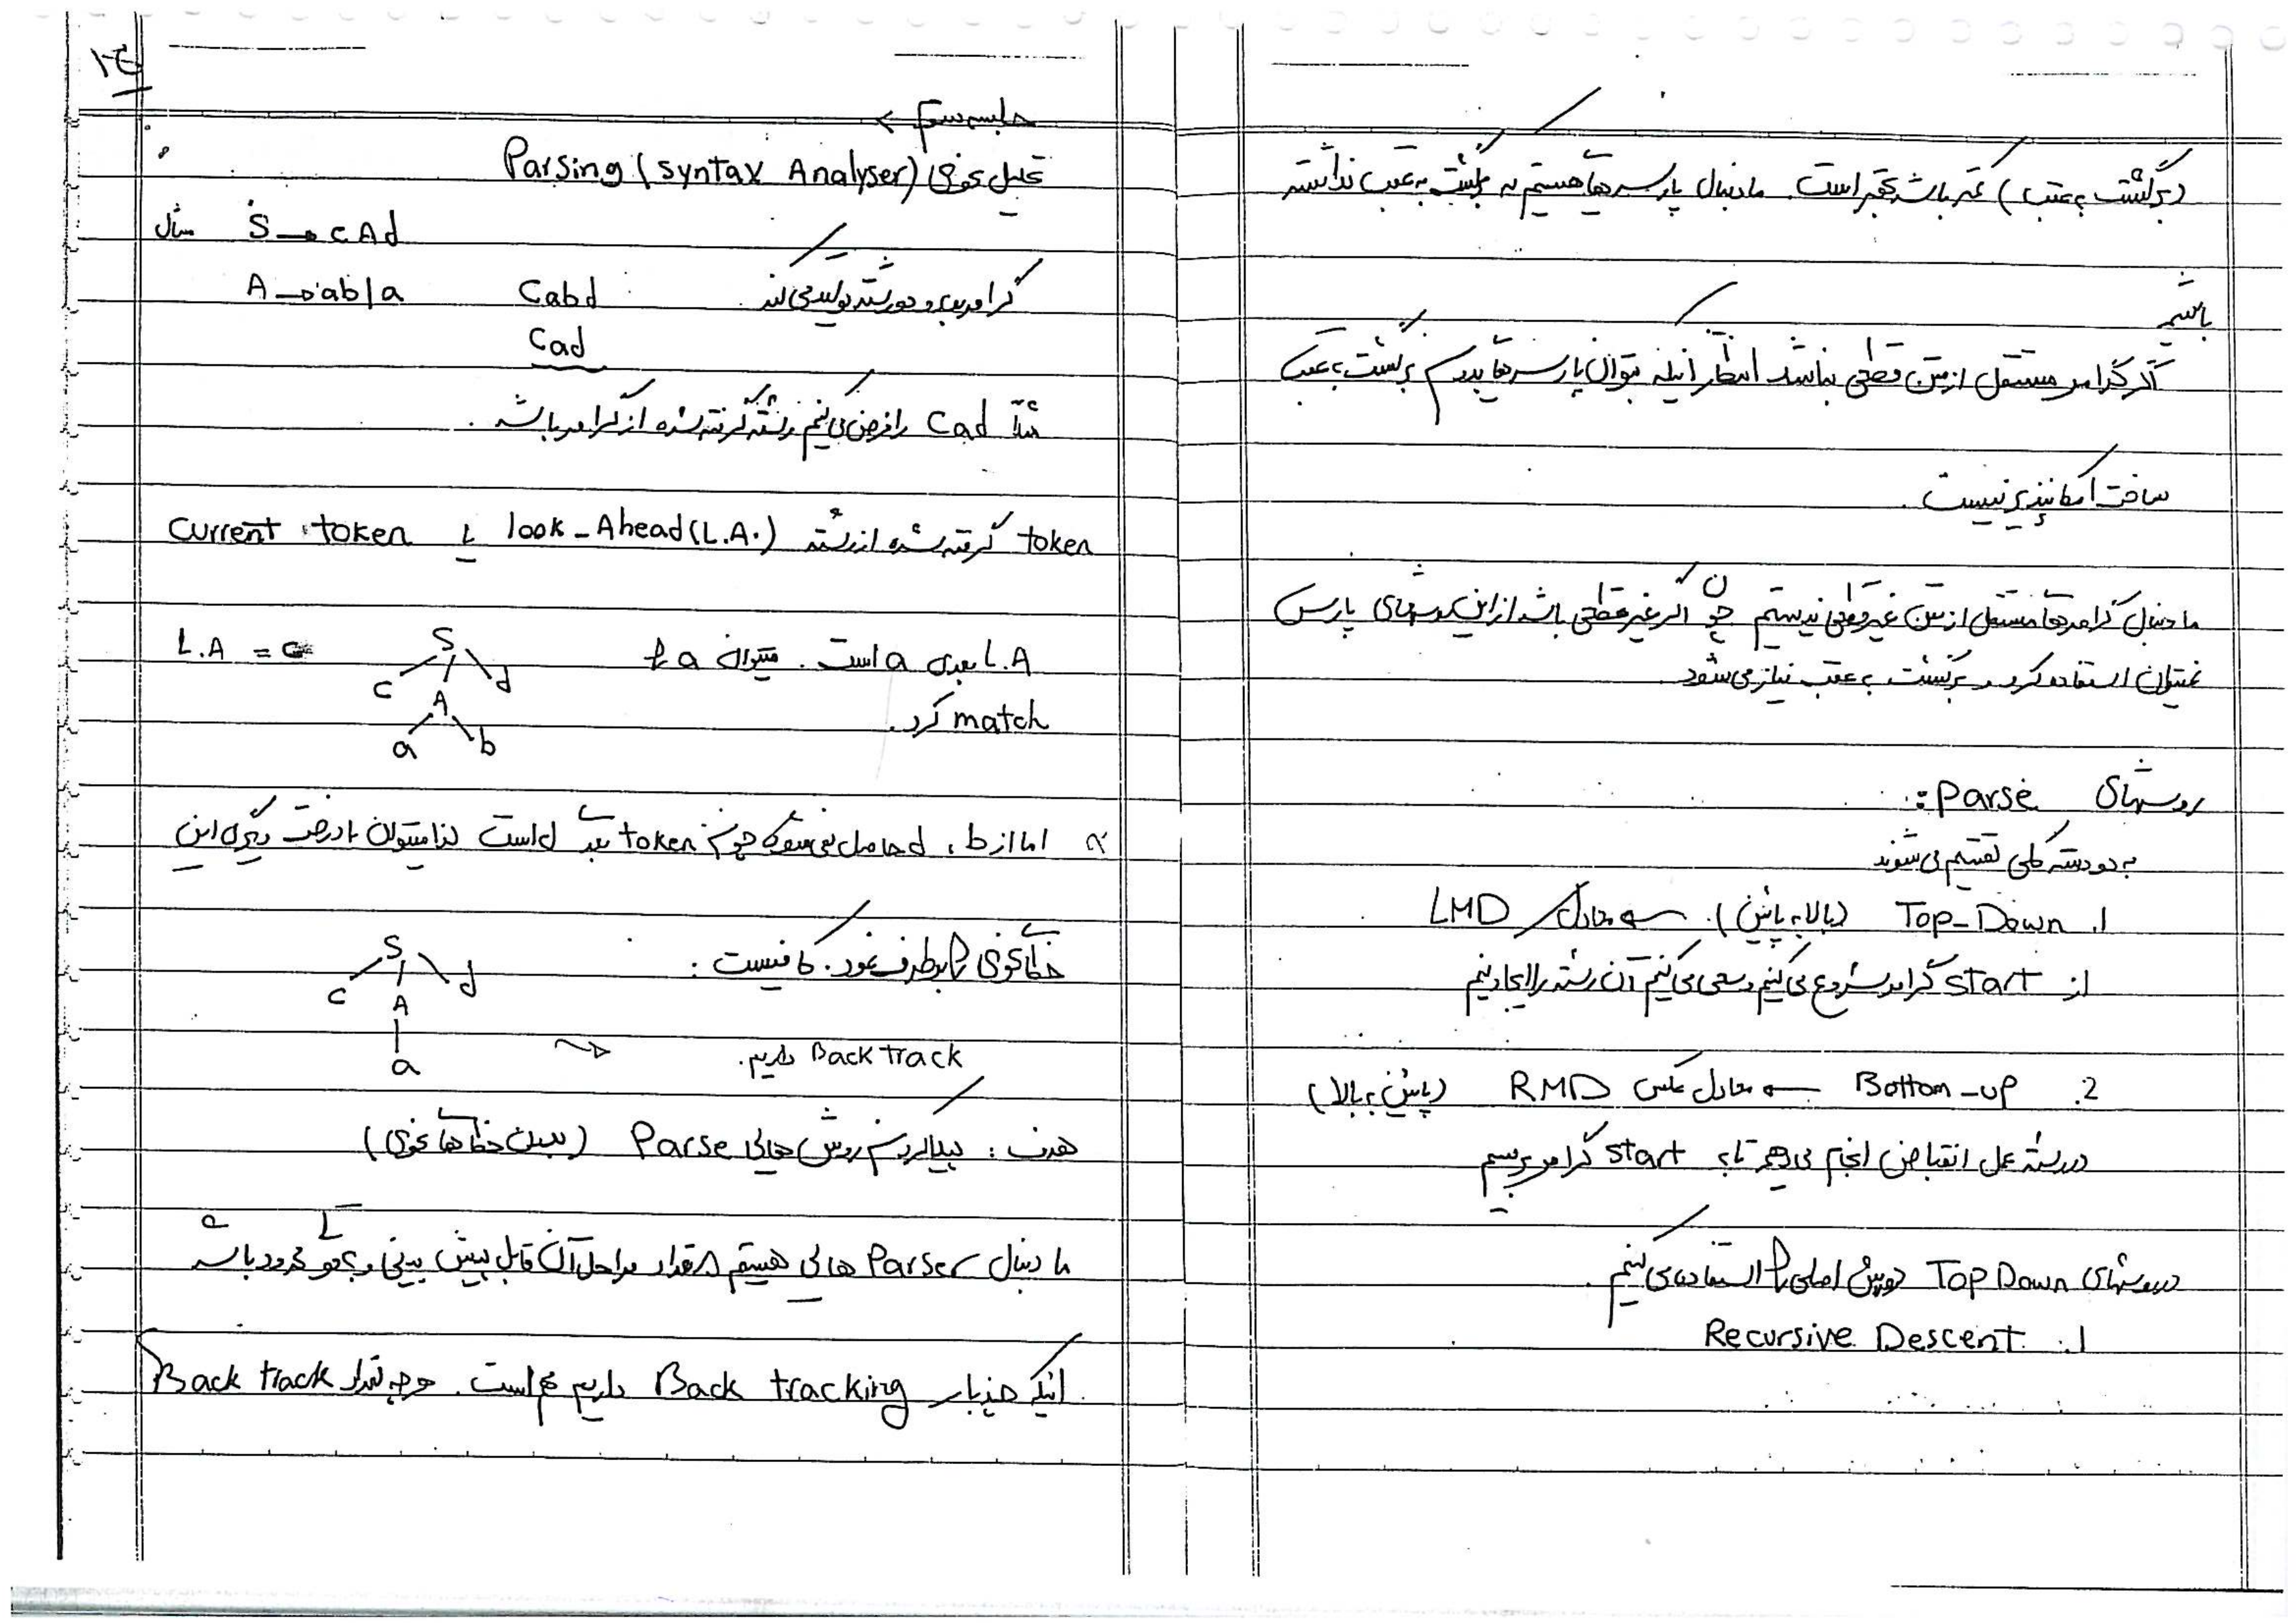 ۱۴
جلسه سوم ←
تحلیل نحوی Parsing (syntax Analyser)
مثال S → cAd
A → ab|a
گرامر دو رشته تولید می کند
Cabd
Cad
مثلاً Cad را فرض می کنیم رشته گرفته شده از گرامر باشد .
token گرفته شده از رشته look-Ahead (L.A.) یا current token
L.A = c
S
c A d
a b
L.A بعدی a است . میتوان a را
match کرد.
اما از b ، d حاصل نمی شود چون token بعدی d است لذا میتوان با درخت دیگری این
خطای نحوی را برطرف نمود. کافیست :
S
c A d
a
Back track داریم.
هدف : پیدا کردن روش هائی Parse (بدون خطاهای نحوی)
ما دنبال Parser هائی هستیم تعداد مراحل آن قابل پیش بینی و محدود باشد
اینکه چند بار Back tracking داریم مهم است. هر چه تعداد Back track
(برگشت به عقب) کمتر باشد بهتر است. ما دنبال پارسرهائی هستیم که برگشت به عقب نداشته
باشیم
اگر گرامر مستقل از متن قطعی نباشد انتظار اینکه بتوان پارسرهای بدون برگشت به عقب
ساخت امکانپذیر نیست.
ما دنبال گرامرهای مستقل از متن غیر قطعی نیستیم چون اگر غیر قطعی باشد از این روشهای پارس
نمیتوان استفاده کرد و برگشت به عقب نیاز می شود
روشهای parse :
به دو دسته کلی تقسیم می شوند
1. Top-Down (بالا به پائین) ← معادل LMD
از start گرامر شروع می کنیم و سعی می کنیم آن رشته را ایجاد کنیم
2. Bottom-up ← معادل عکس RMD (پائین به بالا)
در رشته عمل انقباض انجام می دهیم تا به start گرامر برسیم
در روشهای Top Down دو روش اصلی را استفاده می کنیم
1. Recursive Descent